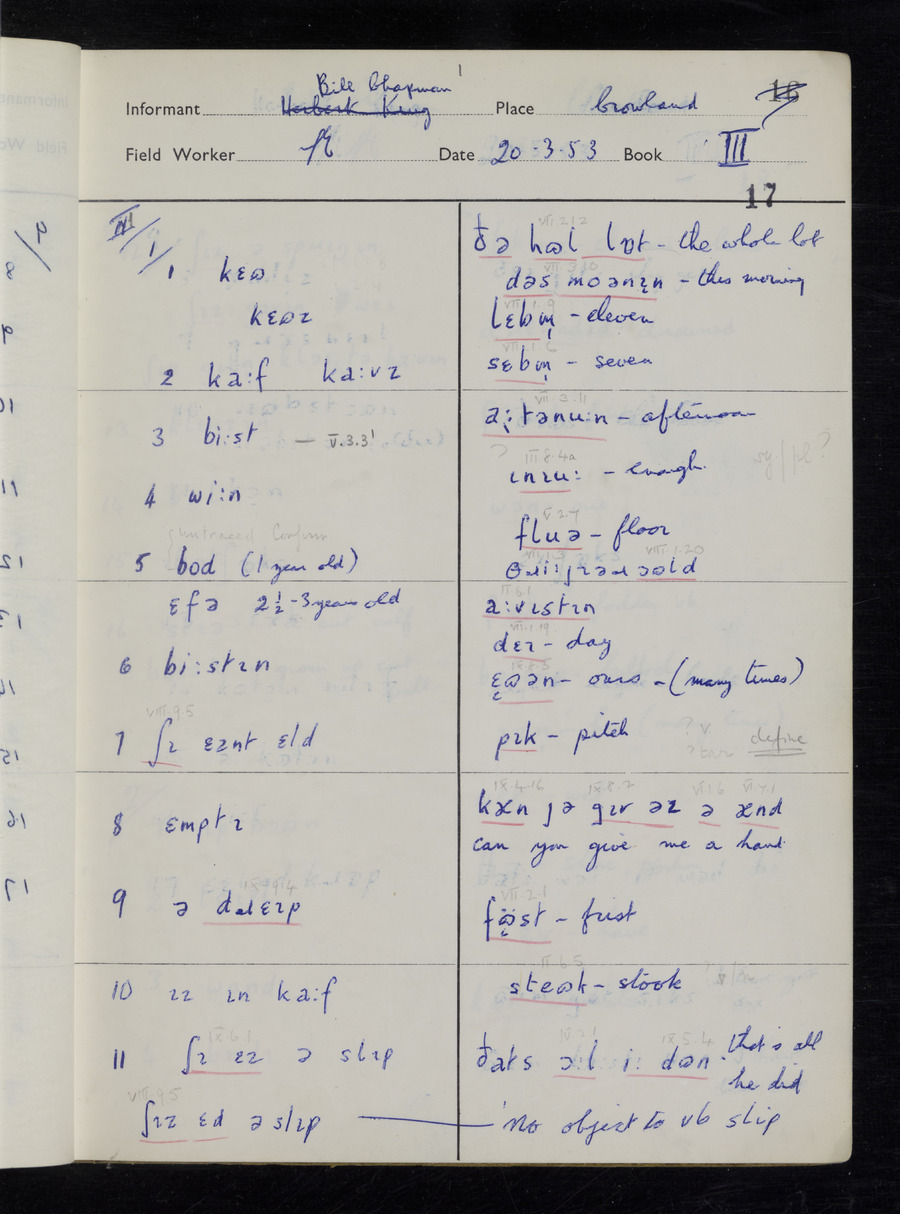 Bill Chapman
Informant Herbert King Place Crowland 16
Field Worker Date 20-3-53 Book III
17
III/1
1 kɛɷ
kɛɷz
2 ka:f ka:vz
3 bi:st — V.3.31
4 wi:n
5 bɒd (1 year old)
ɛfə 2½-3 years old
6 bi:stɪn
VIII.9.5
7 ʃɪ ɛɪnt ɛld
8 ɛmptɪ
9 ə
10 ɪz ɪn ka:f
IX.6.1
11 ʃɪ ɛz ə slɪp
VIII.9.5
ʃɪz ɛd ə slɪp
VII.2.12
ðə hɷl lɒt – the whole lot
VII.3.10
dəs mɔənɪn – this morning
VII.1.9
lɛbm̩ – eleven
sɛbm̩ – seven
VII.3.11
a:tənu:n – afternoon
III.8.4a
ɪnɪu: – enough
V.2.7
flʊə – floor
VII.1.3 VIII.1.20
a:vɪstɪn
VII.1.19
dɛɪ – day
ɛɷən – ours – (many times)
pɪk – pitch define
IX.4.16 IX.8.2 VI.7.1
kæn jə gɪv əz ə ænd
can you give me a hand
VII.2.1
fɷ̈st – first
II.6.5
stɛɷk – stook
ðats ɔ:l i: dɷn. that's all
he did
No object to vb slip